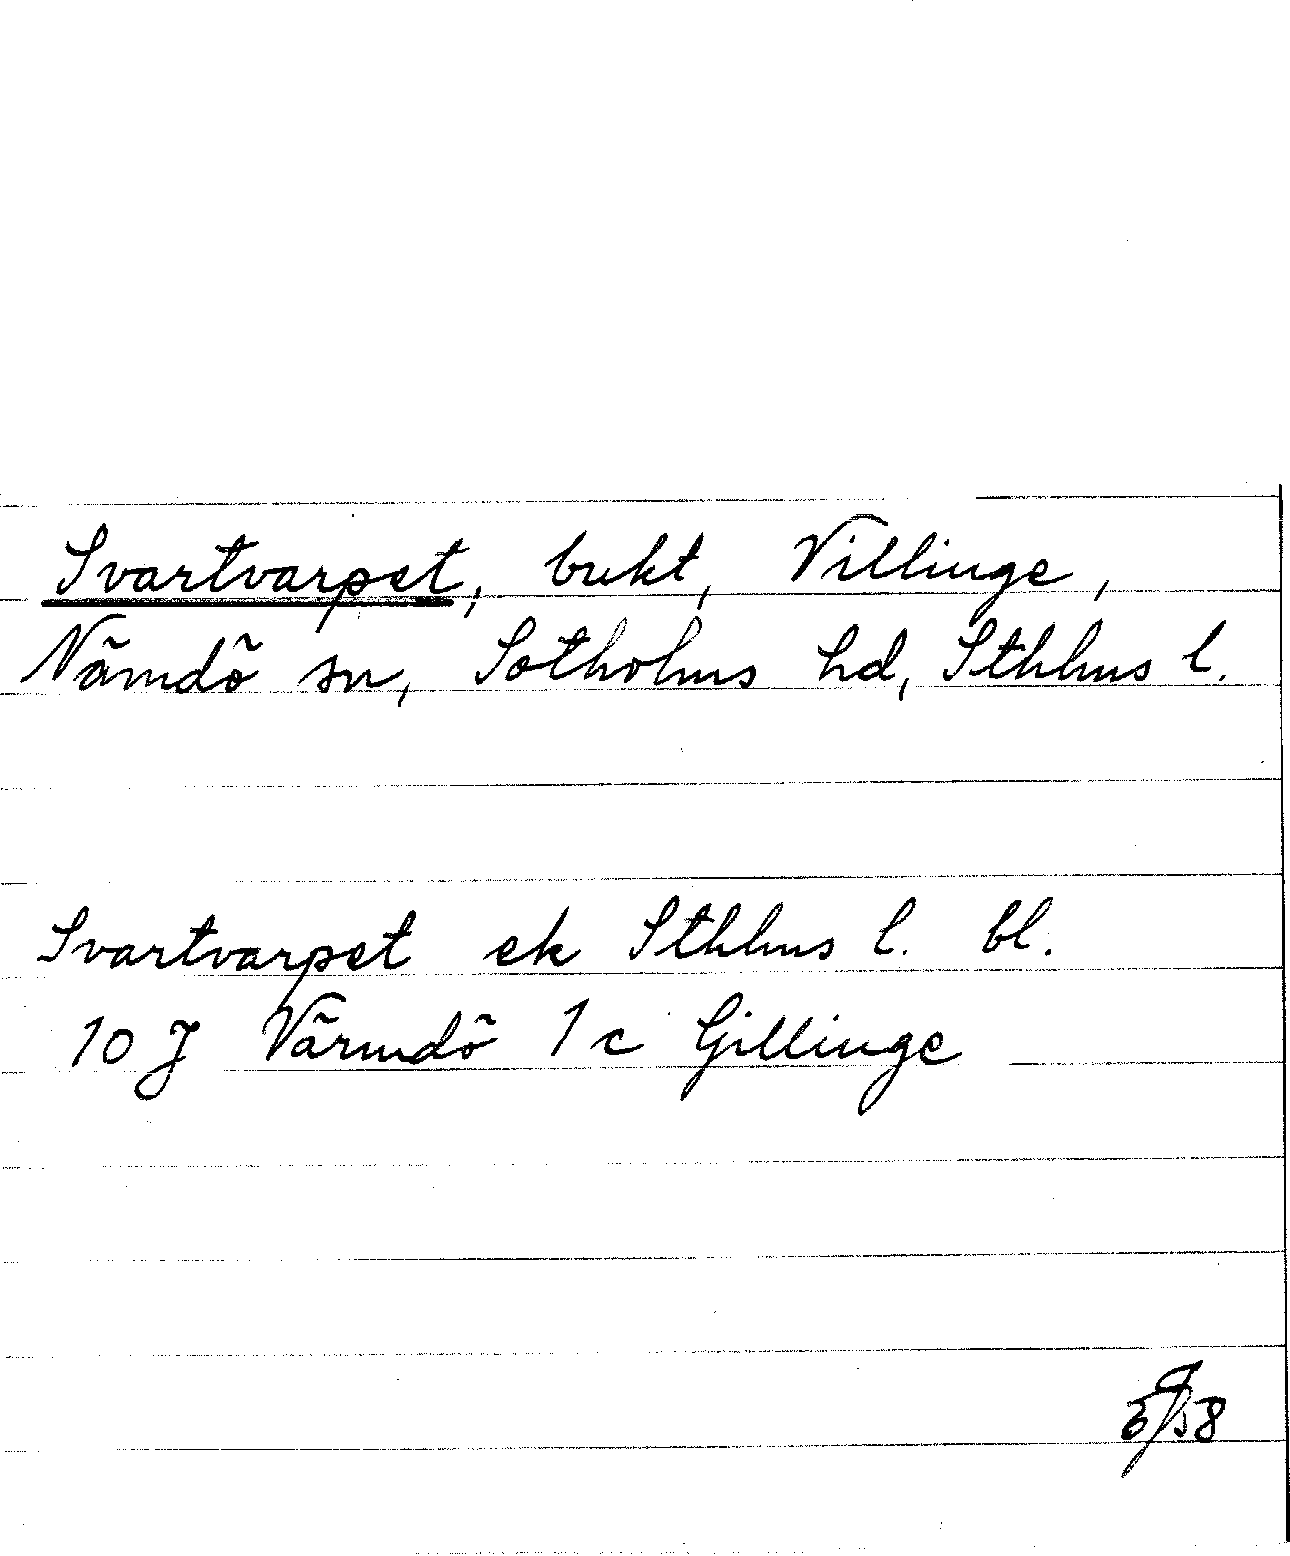 Svartvarpet, bukt, Villinge,
Nämdö sn, Sotholms hd, Sthlms l.
Svartvarpet ek Sthlms l. bl.
10 J Värmdö 1 c Gillinge